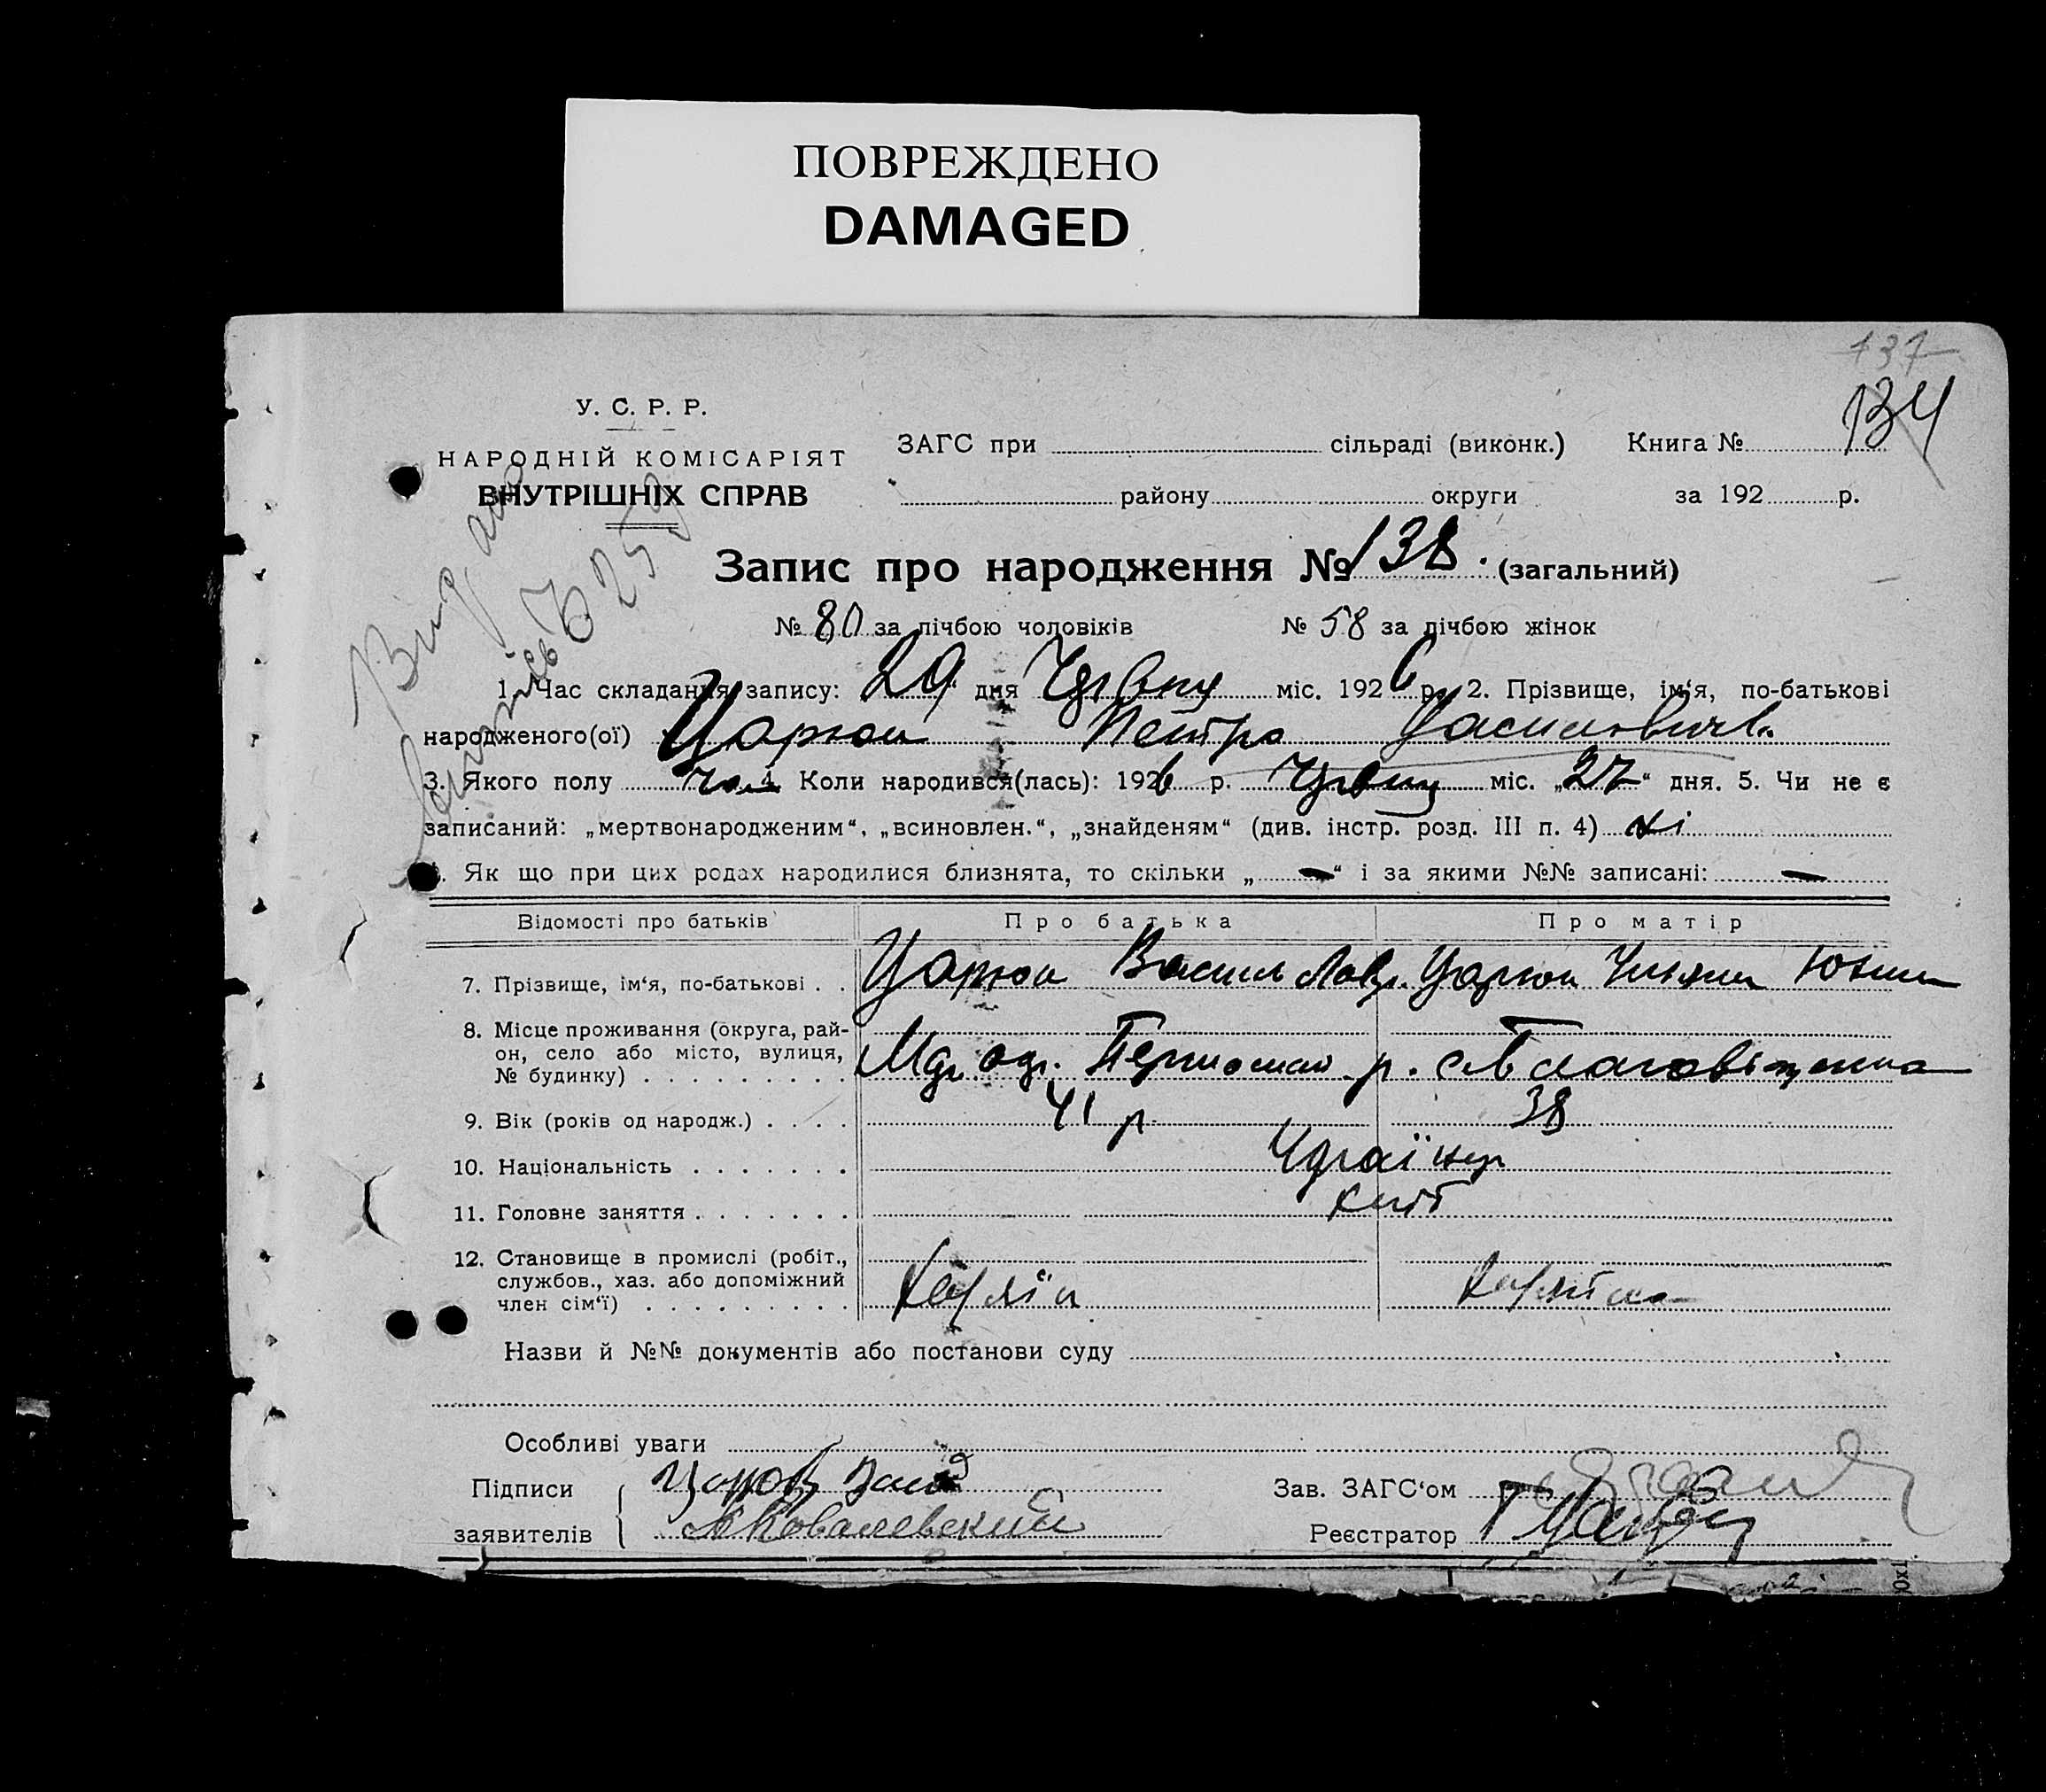 ПОВРЕЖДЕНО
DAMAGED
137
134
У. С. Р. Р.
НАРОДНІЙ КОМІСАРІЯТ
ВНУТРІШНІХ СПРАВ
ЗАГС при сільраді (виконк.) Книга №
району округи за 192 р.
Запис про народження № 138. (загальний)
№ 80 за лічбою чоловіків № 58 за лічбою жінок
1. Час складання запису: 29 " дня Червня міс. 1926 р. 2. Прізвище, ім'я, по-батькові
народженого(ої) Царюк Петро Василович
3. Якого полу чол 4. Коли народився(лась): 1926 р. Червня міс. „27" дня. 5. Чи не є
записаний: „мертвонародженим", „всиновлен.", „знайденям" (див. інстр. розд. III п. 4) ні
. Як що при цих родах народилися близнята, то скільки „ — " і за якими №№ записані: —
Відомості про батьків Про батька Про матір
7. Прізвище, ім'я, по-батькові . . Царюк Василь Лавр. Царюк
8. Місце проживання (округа, рай-
он, село або місто, вулиця,
№ будинку) . . . . . . . . . Первомай. р. с. Благовіщенка
9. Вік (років од народж.) . . . . 41 р. 38
10. Національність . . . . . . . Українці
11. Головне заняття . . . . . . .
12. Становище в промислі (робіт.,
службов., хаз. або допоміжний
член сім'ї) . . . . . . . . .
Назви й №№ документів або постанови суду
Особливі уваги
Підписи
заявителів Ковалевский
Зав. ЗАГС'ом
Реєстратор